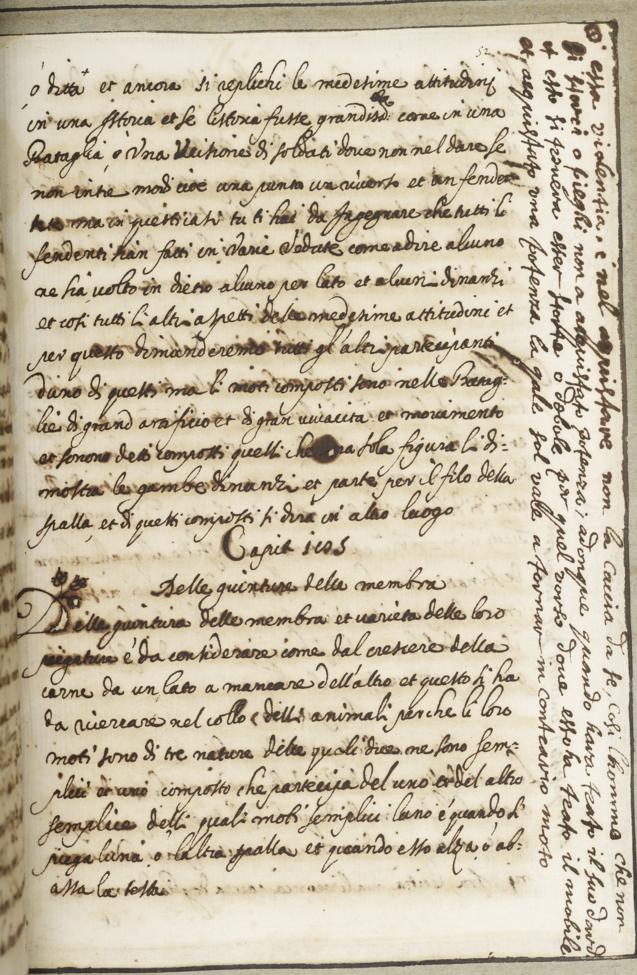 ò detta et ancora si replichi le medesime attitudini
in una Istoria et se l'istoria fusse grandiss: come in una
Bataglia, ò Una Uccisione di soldati dove non nel dare se
non intre modi cioè una punta un riverso et un fenden
te ma in questi casi tu ti hai da ingegnare che tutti li
fendenti sian fatti in varie vedute come a dire alcuno
ne sia volto in dietro alcuno per lato et alcun dinanzi
et cosi tutti l'altri aspetti delle medesime attitudini et
per questo dimanderemo tutti gl'altri partecipanti
d'uno di questi ma li moti composti sono nelle Batag:
lie di grand artificio et di gran vivacità et movimento
et sonono detti composti quelli che una sola figura li di:
mostra le gambe dinanzi et parte per il filo della
spalla, et di questi composti si dirà in altro luogo
Capit 1105
Delle giunture delle membra
Delle giuntura delle membra et varietà delle loro
piegature è da considerare come dal crescere della
carne da un lato a mancare dell'altro et questo si ha
da ricercare nel collo delli animali perche li loro
moti sono di tre nature delle quali due ne sono sem:
plici et uno composto che partecipa del uno et del altro
semplice delli quali moti semplici l'uno è quando si
piega l'una, o l'altra spalla et quando esso alza, ò ab:
assa la testa
di essa violentia, e nel acquistare non la caccia da se, cosi l'homme che non
si storce o pieghi non a acquistato potenza; adonque quando hara trato il suo dardo
et esso si trovera esser storto e debole per quel verso dove esso ha trato il mobile
et acquistato una potenza la quale sol vale a tornar in contrario moto